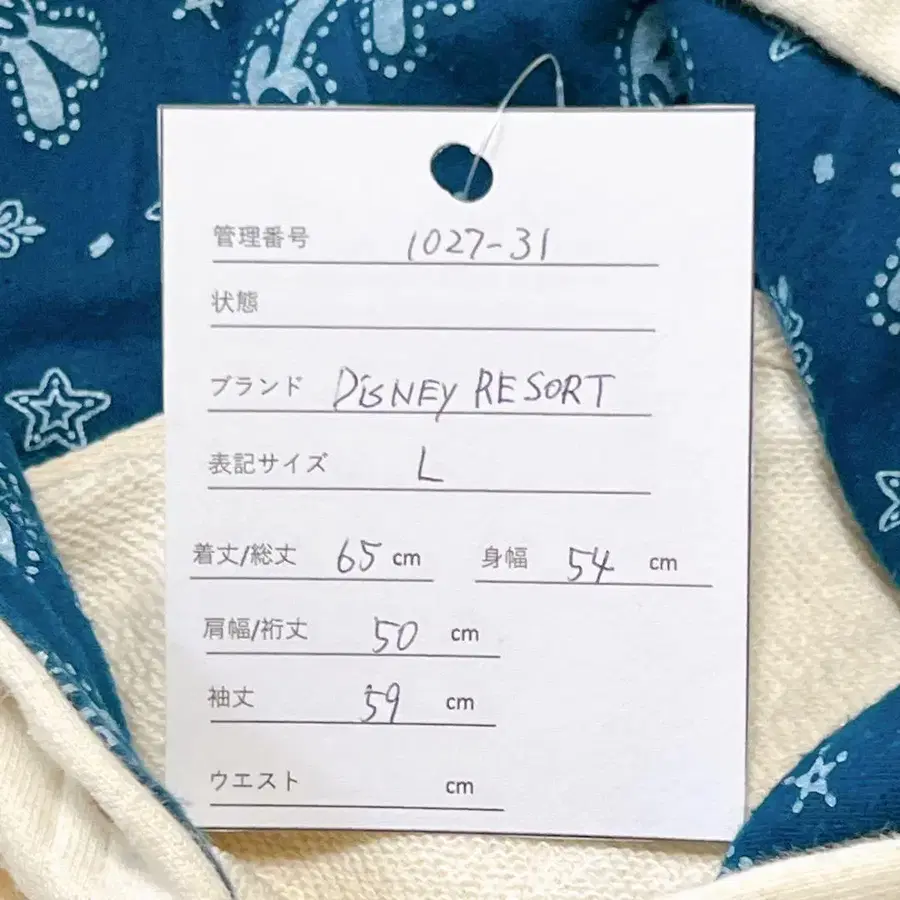 管理番号 1027-31
状態
ブランド DiSNEY RESORT
表記サイズ L
着丈/総丈 65 cm 身幅 54 cm
肩幅/裄丈 50 cm
袖丈 59 cm
ウエスト cm